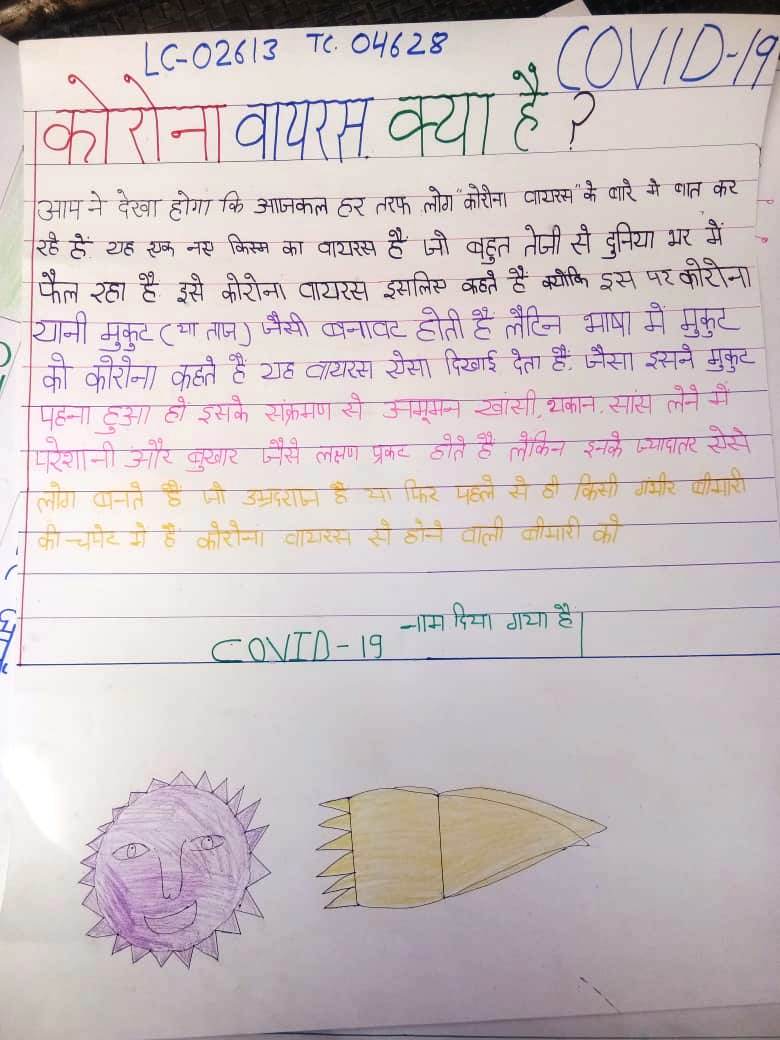 LC-02613 TC. 04628 COVID-19
कोरोना वायरस क्या है ?
आप ने देखा होगा कि आजकल हर तरफ लोग "कोरोना वायरस" के बारे मे बात कर
रहे हैं. यह एक नए किस्म का वायरस हैं जो बहुत तेजी से दुनिया भर में
फैल रहा है. इसे कोरोना वायरस इसलिए कहते हैं क्योकि इस पर कोरोना
यानी मुकुट (या ताज) जैसी बनावट होती हैं लैटिन भाषा में मुकुट
को कोरोना कहते हैं यह वायरस ऐसा दिखाई देता है. जैसा इसने मुकुट
पहना हुआ हो इसके संक्रमण से अमूमन खांसी, थकान, सांस लेने में
परेशानी और बुखार जैसे लक्षण प्रकट होते हैं लेकिन इनके ज्यादातर ऐसे
लोग बनते हैं जो उम्रदराज है या फिर पहले से ही किसी गंभीर बीमारी
की चपेट मे हैं कोरोना वायरस से होने वाली बीमारी को
COVID-19 नाम दिया गया है|